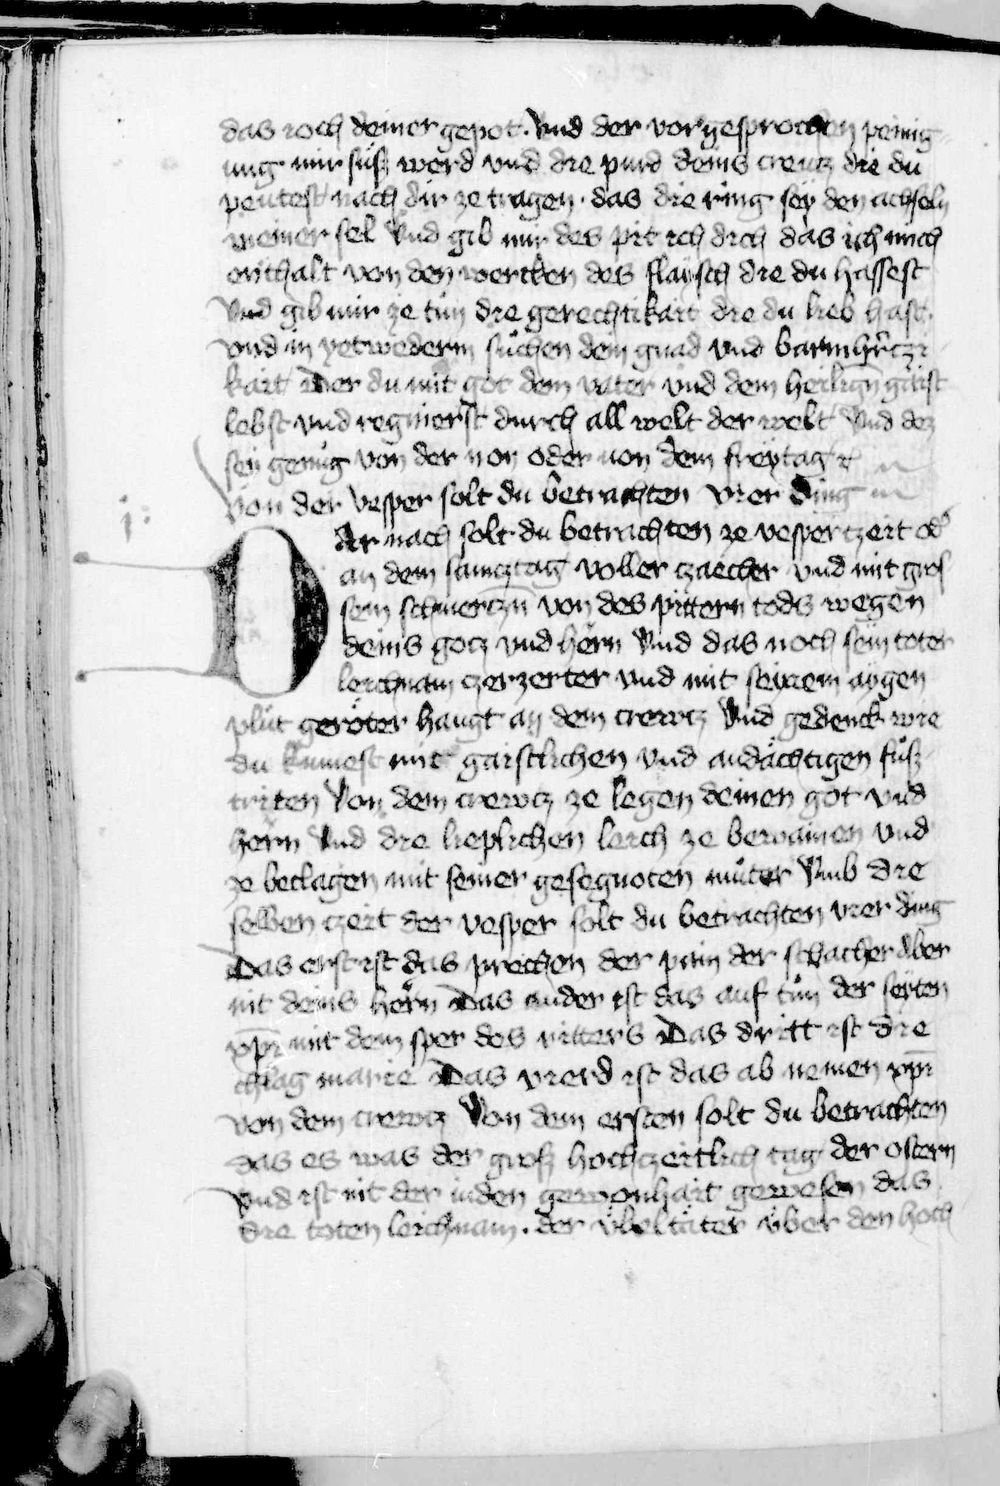 das ioch deiner gepot. Vnd der vorgesprochen peinig-
ung mir süsz werd vnd die purd deins creucz die du
peutest nach dir ze tragen. das die ring sey den achseln
meiner sel Vnd gib mir des pit ich dich das ich mich
enthalt von den wercken des flaisch die du hassest
Vnd gib mir ze tün die gerechtikait die du lieb hast.
vnd in yetwederm süchen dein gnad vnd barmhrczi-
kait Der du mit got dem vater vnd dem heilign gaist
lebst vnd regnierst durch all welt der welt Vnd dez
sey genüg von der non oder von dem freytag
Von der vesper solt du betrachten vier ding
DAr nach solt du betrachten ze vesperczeit od
an dem samcztag voller czaecher vnd mit gros
sem schmerczn von des pittern tods wegen
deins gocz vnd hern Vnd das noch sein toter
leichnam czerzerter vnd mit seinem aygen
plüt geröter hangt an dem crewcz Vnd gedenck wie
du kumest mit gaistlichen vnd andächtigen füsz-
triten Von dem crewcz ze legen deinen got vnd
hern Vnd die lieplichen leich ze bewainen vnd
ze beclagen mit seiner gesegnoten müter Vmb die
selben czeit der vesper solt du betrachten vier ding
Das erst ist das prechen der pain der schacher Aber
nit deins hern Das ander ist das auf tün der seyten
xpi mit dem sper des ritters Das dritt ist die
chlag marie Das vierd ist das ab nemen xpi
von dem crewcz Von dem ersten solt du betrachten
das es was der grosz hochczeitlich tag der ostern
Vnd ist nit der iuden gewonhait gewesen das
die toten leichnam. der übeltäter über den hoch